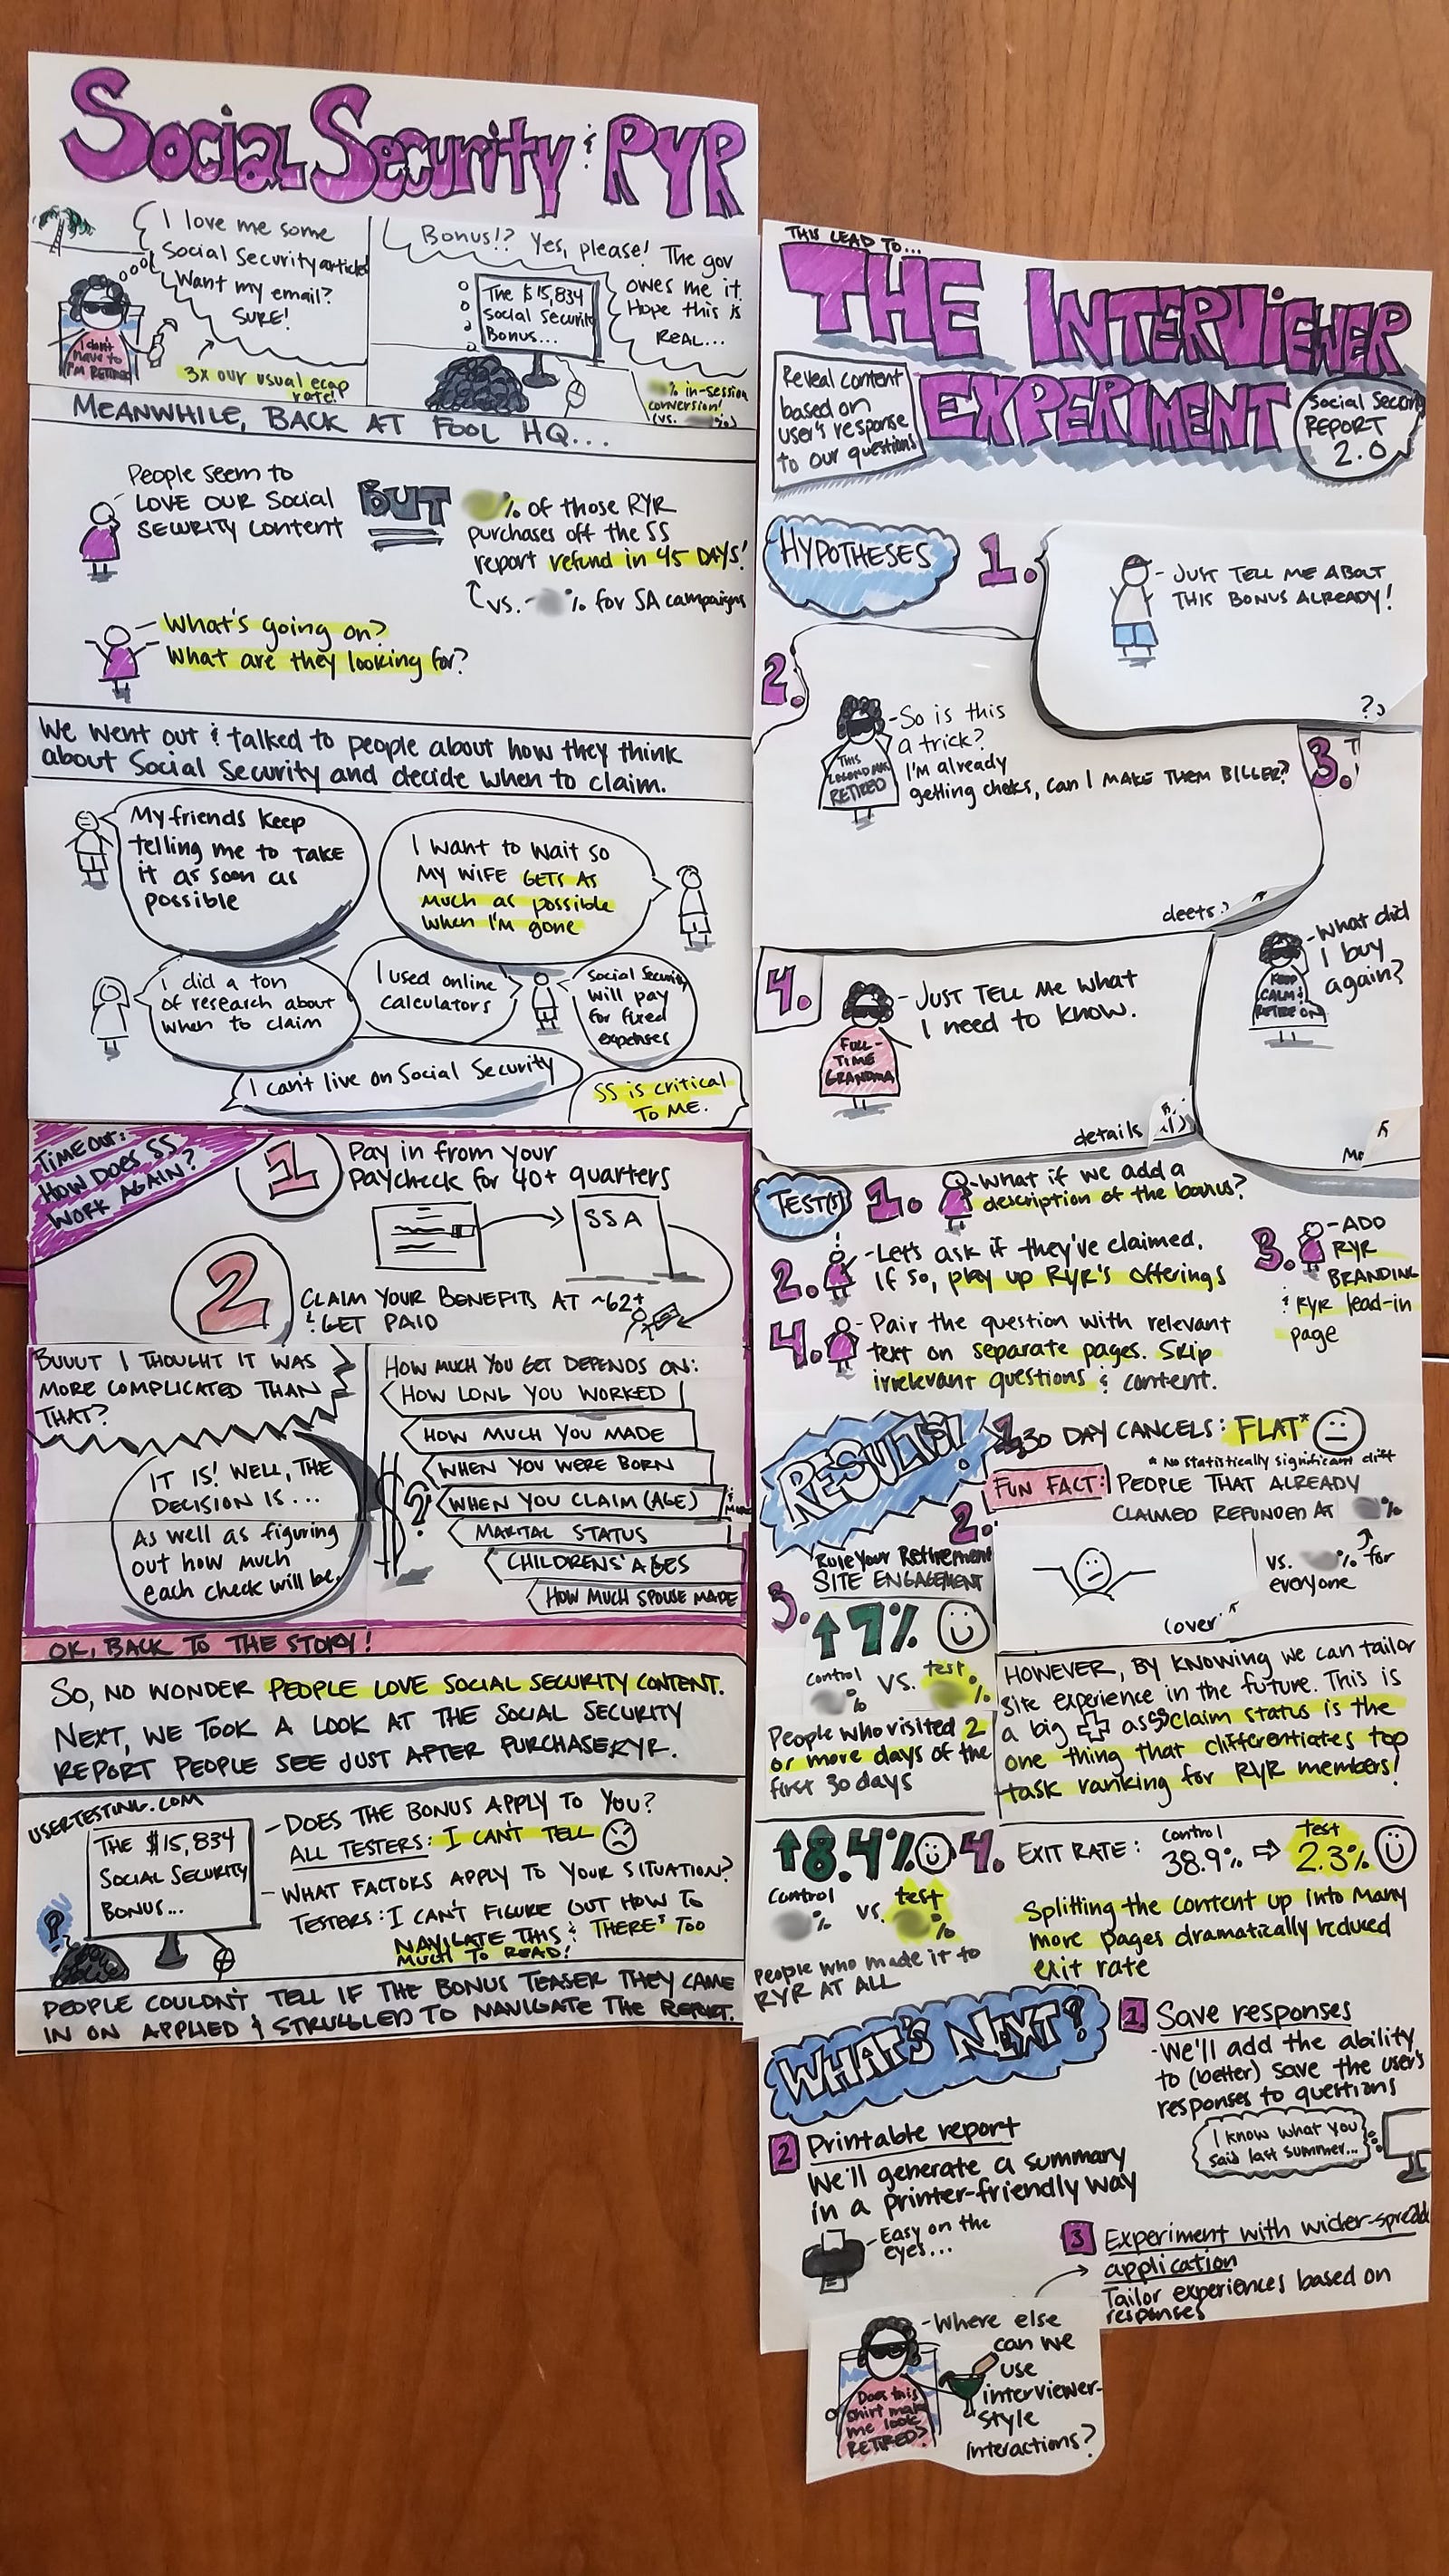 Social Security & RYR
I love me some
Social Security articles
Want my email?
SURE!
I don't
have to
I'm RETIRED
3x our usual ecap
rate!
Bonus!? Yes, please! The gov
owes me it.
Hope this is
REAL...
The $15,834
Social Security
Bonus...
% in-session
conversion!
(vs. %)
MEANWHILE, BACK AT FOOL HQ...
People seem to
LOVE OUR Social
SECURITY Content
BUT
% of those RYR
purchases off the SS
report refund in 45 DAYS!
vs. ~ % for SA campaigns
What's going on?
What are they looking for?
We went out & talked to people about how they think
about Social Security and decide when to claim.
My friends keep
telling me to TAKE
it as soon as
possible
I want to wait so
MY WIFE GETS AS
much as possible
when I'm gone
i did a ton
of research about
when to claim
I used online
calculators
Social Security
will pay
for fixed
expenses
I can't live on Social Security
SS is critical
TO ME.
TIMEOUT:
HOW DOES SS
WORK AGAIN?
1
Pay in from your
Paycheck for 40+ quarters
SSA
2
CLAIM YOUR BENEFITS AT ~62+
& GET PAID
BUUUT I THOUGHT IT WAS
MORE COMPLICATED THAN
THAT?
IT IS! WELL, THE
DECISION IS...
As well as figuring
out how much
each check will be.
HOW MUCH YOU GET DEPENDS ON:
HOW LONG YOU WORKED
HOW MUCH YOU MADE
WHEN YOU WERE BORN
WHEN YOU CLAIM (AGE)
MARITAL STATUS
CHILDREN'S AGES
HOW MUCH SPOUSE MADE
$?
OK, BACK TO THE STORY!
SO, NO WONDER PEOPLE LOVE SOCIAL SECURITY CONTENT.
NEXT, WE TOOK A LOOK AT THE SOCIAL SECURITY
REPORT PEOPLE SEE JUST AFTER PURCHASE RYR.
USERTESTING.COM
THE $15,834
SOCIAL SECURITY
BONUS...
?
- DOES THE BONUS APPLY TO YOU?
ALL TESTERS: I CAN'T TELL
- WHAT FACTORS APPLY TO YOUR SITUATION?
TESTERS: I CAN'T FIGURE OUT HOW TO
NAVIGATE THIS & THERE'S TOO
MUCH TO READ!
PEOPLE COULDN'T TELL IF THE BONUS TEASER THEY CAME
IN ON APPLIED & STRUGGLED TO NAVIGATE THE REPORT.
THIS LEAD TO...
THE INTERVIEWER
EXPERIMENT
Reveal content
based on
user's response
to our questions
Social Security
REPORT
2.0
HYPOTHESES
1.
- JUST TELL ME ABOUT
THIS BONUS ALREADY!
?
2.
- So is this
a trick?
I'm already
getting checks, can I MAKE THEM BIGGER?
THIS
RETIRED
deets?
3.
- What did
I buy
again?
KEEP
CALM &
RETIRE ON
4.
- JUST TELL ME WHAT
I need to know.
FULL-
TIME
GRANDMA
details
TEST(S)
1.
- What if we add a
description of the bonus?
2.
- Let's ask if they've claimed.
If so, play up RYR's offerings
3.
- ADD
RYR
BRANDING
& RYR lead-in
page
4.
- Pair the question with relevant
text on separate pages. Skip
irrelevant questions & content.
RESULTS!
1.
30 DAY CANCELS: FLAT*
* No statistically significant diff
2.
FUN FACT: PEOPLE THAT ALREADY
CLAIMED REFUNDED AT %
vs. % for
everyone
(over
3.
Rule Your Retirement
SITE ENGAGEMENT
↑7%
control
%
vs.
test
%
People who visited 2
or more days of the
first 30 days
HOWEVER, BY KNOWING we can tailor
site experience in the future. This is
a big + as SS claim status is the
one thing that differentiates top
task ranking for RYR members!
↑8.4%
control
%
vs.
test
%
People who made it to
RYR AT ALL
4.
EXIT RATE:
control
38.9%
⇨
test
2.3%
Splitting the content up into many
more pages dramatically reduced
exit rate
WHAT'S NEXT?
1 Save responses
- We'll add the ability
to (better) save the user's
responses to questions
I know what you
said last summer...
2 Printable report
We'll generate a summary
in a printer-friendly way
- Easy on the
eyes...
3 Experiment with wider-spread
application
Tailor experiences based on
responses
- Where else
can we
use
interviewer-
style
interactions?
Does this
shirt make
me look
RETIRED?